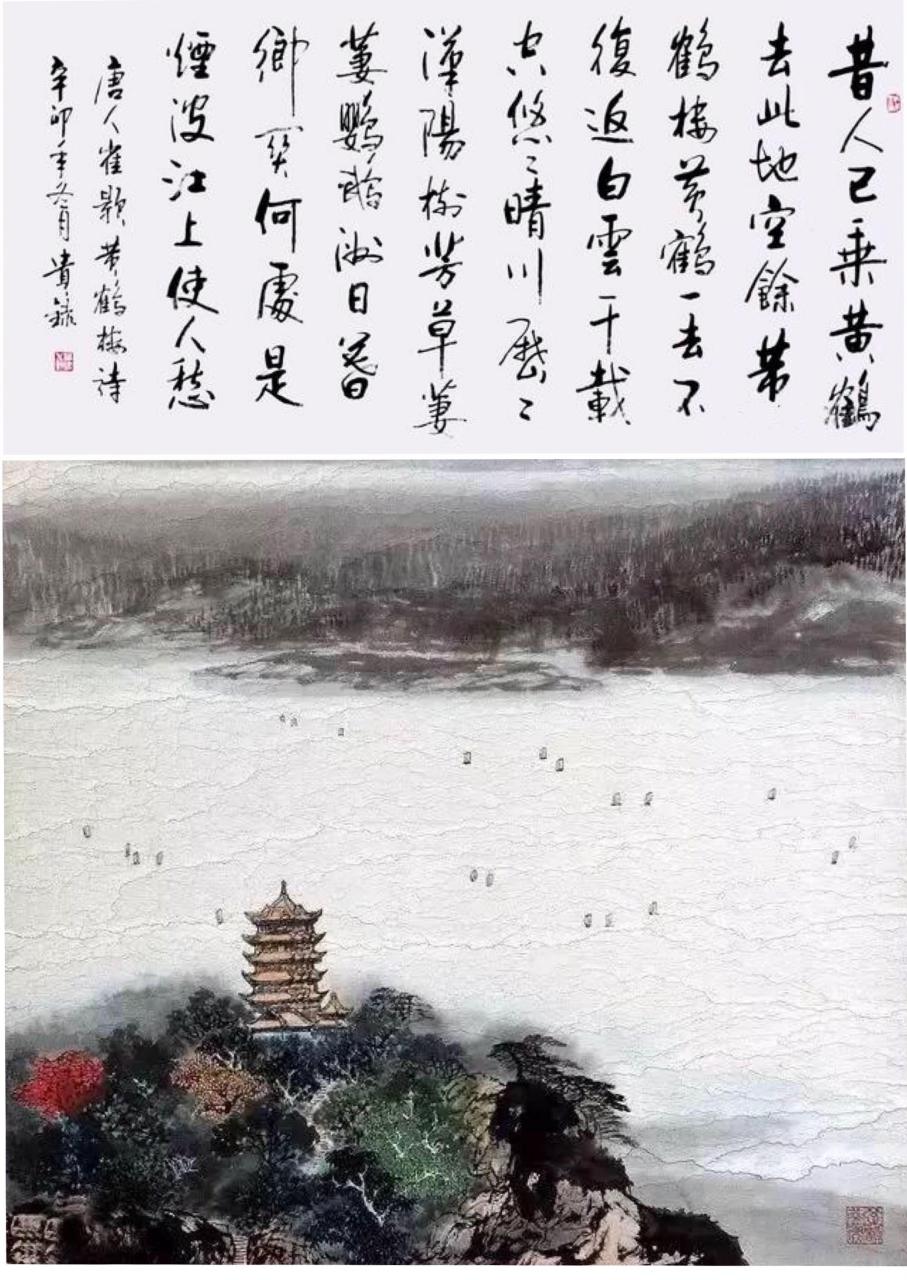 昔人已乗黄鶴
去此地空餘黄
鶴樓黄鶴一去不
復返白雲千載
空悠〻晴川歷〻
漢陽樹芳草萋
萋鸚鵡洲日暮
鄉関何處是
煙波江上使人愁
唐人崔顥黄鶴樓詩
辛卯年冬月貴錄